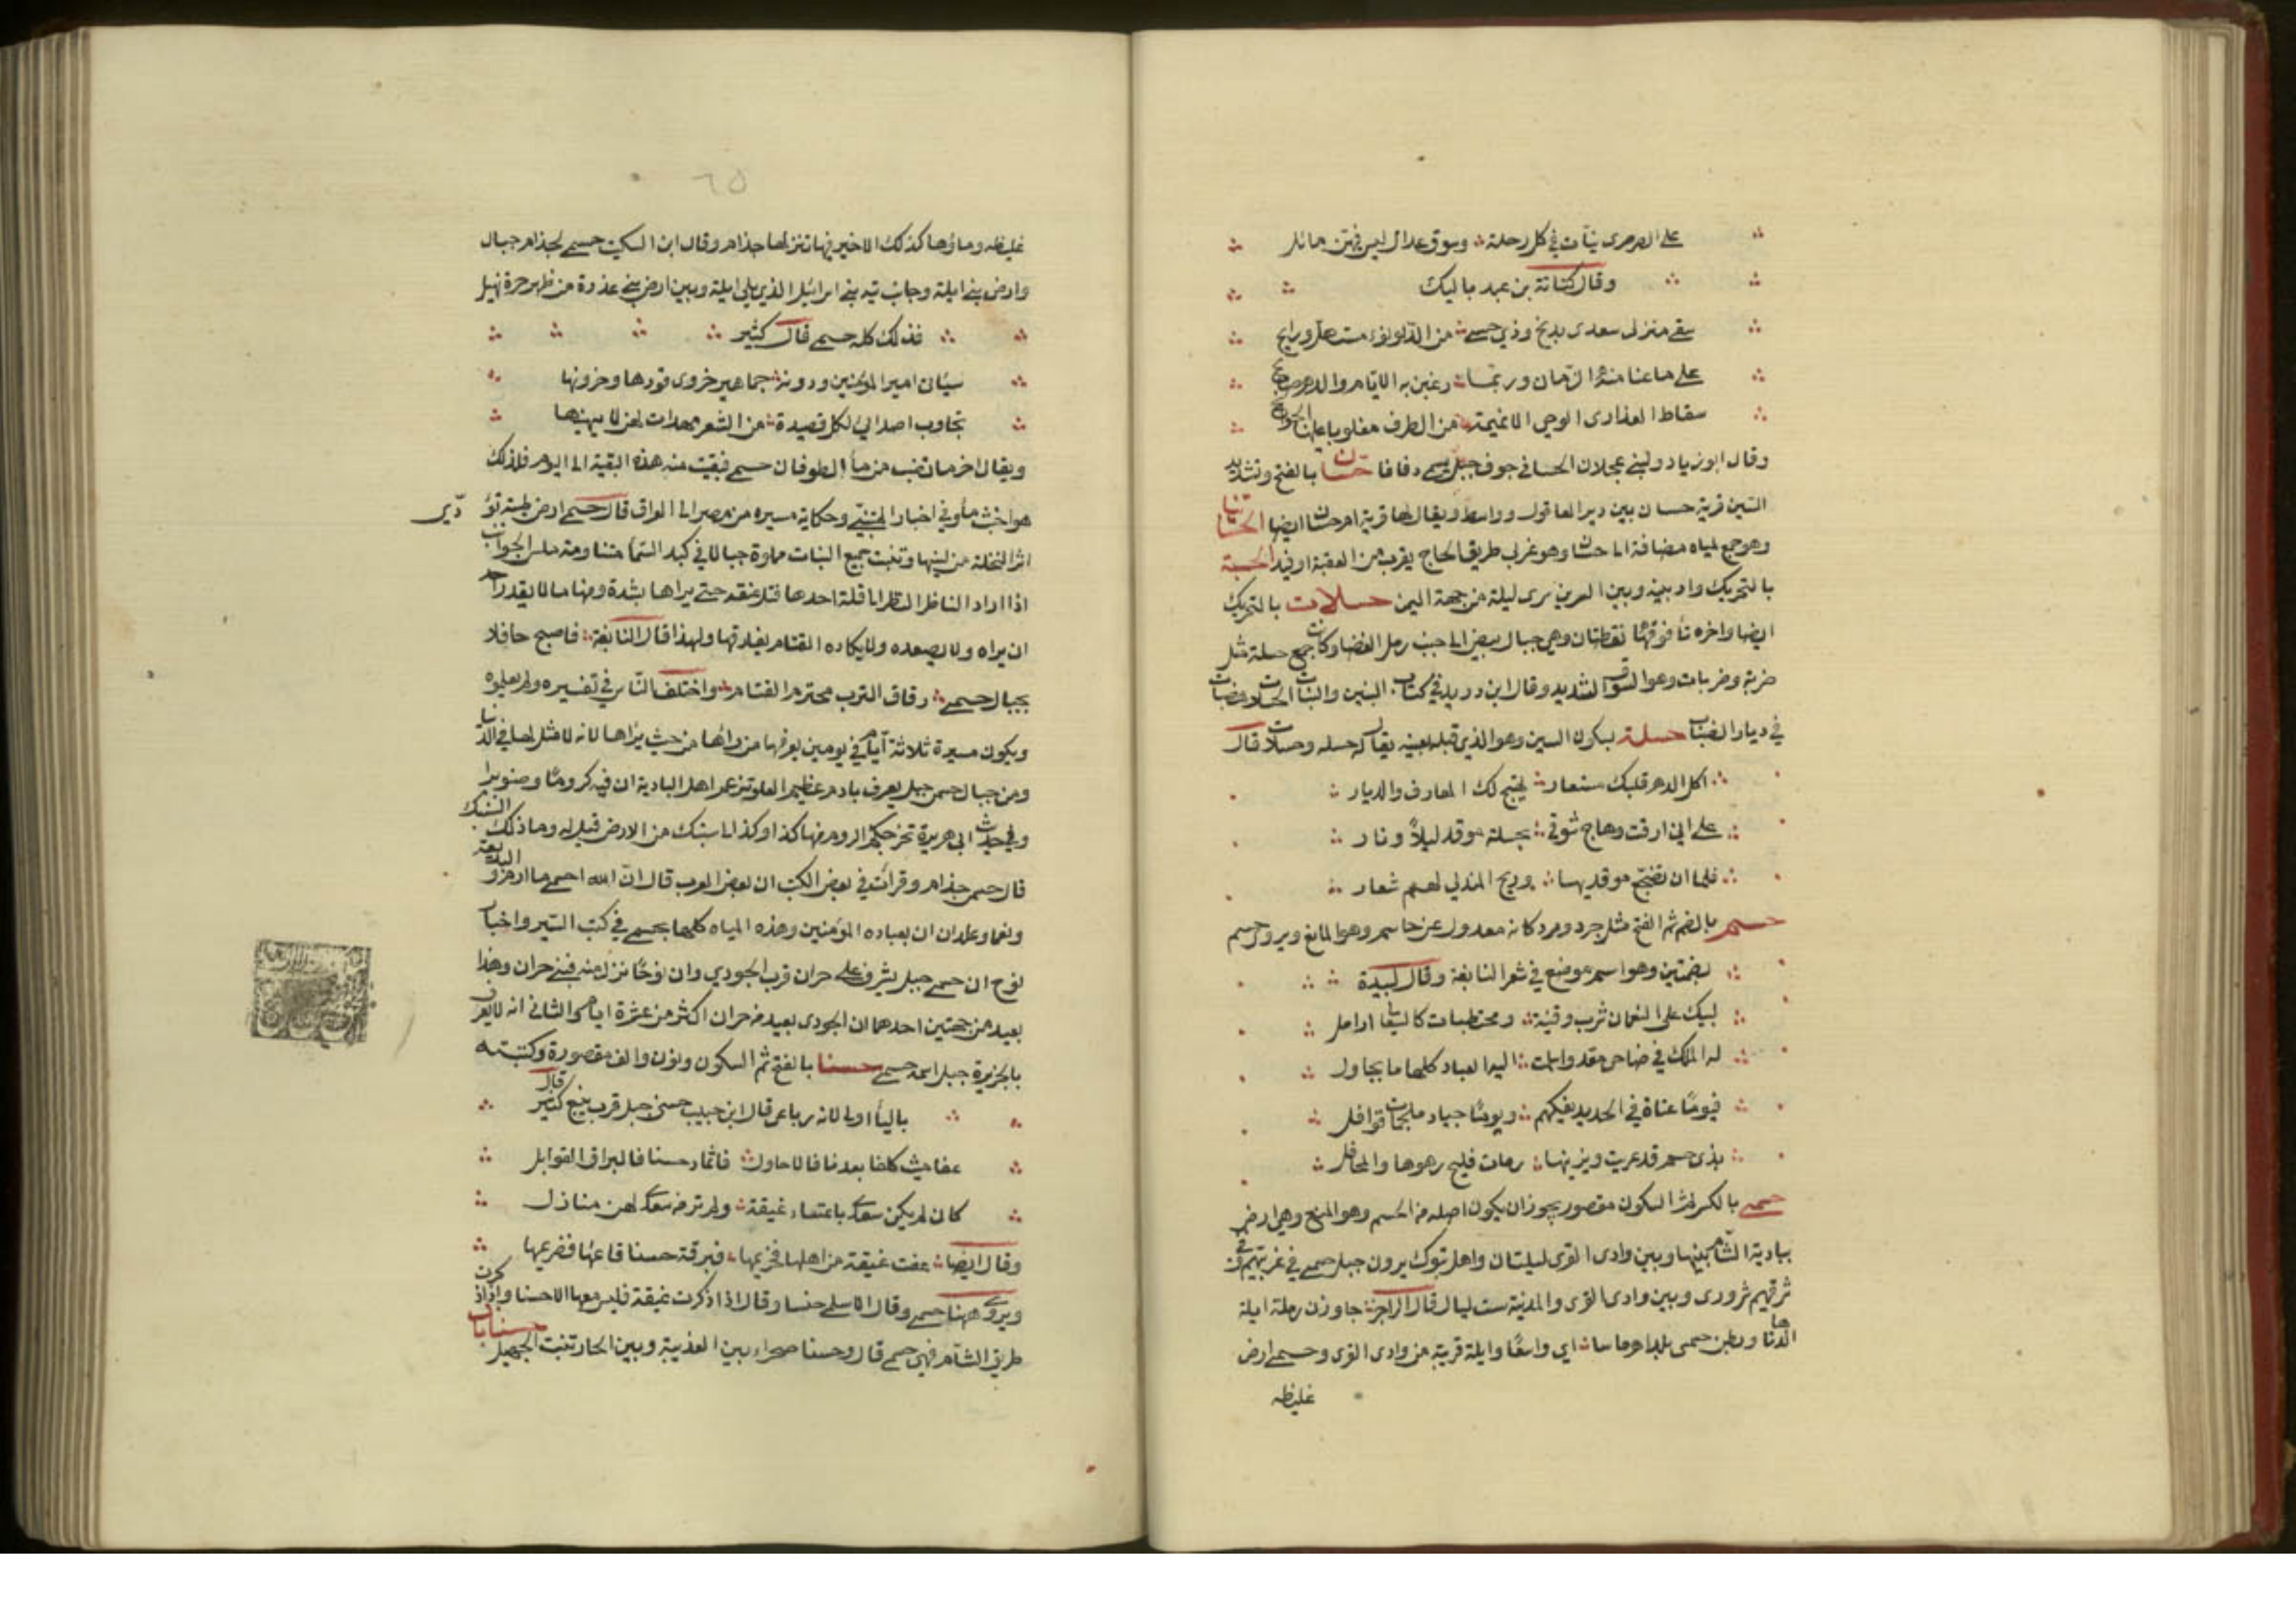 على الصرصرى ينات في كل رحلة وسوق عدال ليس فيهن مائل
وقال كنانة بن عبد باليك
سقى منزلى سعدى بدمخ وذي حسى من الدلو نوء مستهل ورايح
على ما عنا منه الزمان وربما رعين به الايام والدهر صالح
سقاط العذارى الوحي الا نميمة من الطرف مغلوبا عليه الجوانح
وقال ابو زياد ولبني عجلان الحسا في جوف جبل يسمى دفاقا حسان بالفتح وتشديد
السين قرية حسان بين دير العاقول وواسط ويقال لها قرية ام حسان ايضا الحسانيات
وهو جمع لمياه مضافة الى حسان وهو غربي طريق الحاج يقرب من العقبة او فيد الحسبة
بالتحريك واد بينه وبين السرين سرى ليلة من جهة اليمن حسلات بالتحريك
ايضا واخره تا فوقها نقطتان وهي جبال بيض الى جنب رمل الغضا وكانت جمع حسلة مثل
ضربة وضربات وهو السوق الشديد وقال ابن دريد في كتاب البنين والبنات الحسلات هضبات
في ديار الضباب حسلة بسكون السين وهو الذي قبله بعينه يقال له حسله وحسلات قال
اكل الدهر قلبك مستعار تهيج لك المعارف والديار
على اني ارقت وهاج شوقي بحسلة موقد ليلا ونار
فلما ان تضجع موقديها وريح المندلي لهم شعار
حسم بالضم ثم الفتح مثل جرد وصرد كانه معدول عن حاسم وهو المانع ويروى حسم
بضمتين وهو اسم موضع في شعر النابغة وقال لبيدة
لبيك على النعمان شرب وقينة ومختبطات كالسعالى ارامل
له الملك في ضاحى معد واسلمت اليه العباد كلها ما يحاول
فيوما عناة في الحديد يفكهم ويوما جياد ملجمات قوافل
بذى حسم قد عريت ويزينها دماث فليج رهوها والمحافل
حسمى بالكسر ثم السكون مقصور يجوز ان يكون اصله من الحسم وهو المنع وهي ارض
ببادية الشام بينها وبين وادى القرى ليلتان واهل تبوك يرون جبل حسمى في غربيهم وفى
شرقيهم شرورى وبين وادى القرى والمدينة ست ليال قال الراجز جاوزن رملة ايلة
الدهنا وبطن حسمى بلدا هرماسا اي واسعا وايلة قرية من وادى القرى وحسمى ارض
غليظه
٦٥
غليظه وماؤها كذلك لا خير فيها تنزلها جذام وقال ابن السكيت حسمى لجذام جبال
وارض بين ايلة وجانب تيه بني اسرائيل الذي يلي ايلة وبين ارض بني عذرة من ظهر حرة نهيل
فذلك كله حسمى قال كثير
سيأتى امير المؤمنين ودونه جماهير حسمى قورها وحزونها
تجاوب اصدائي لكل قصيدة من الشعر مهداة لمن لا يهينها
ويقال اخر ما نضب من ماء الطوفان حسمى فبقيت منه هذه البقية الى اليوم فلذلك
هو اخبث ماء وفي اخبار المتنبي وحكاية مسيره من مصر الى العراق قال حسمى ارض طيبة تؤدّي
اثر النخلة من لينها وتنبت جميع النبات مملوة جبالا في كبد السما متناوحة ملس الجوانب
اذا اراد الناظر النظر الى قلة احدها فتل عنقه حتى يراها بشدة ومنها ما لا يقدر احد
ان يراه ولا يصعده ولا يكاده القتام يفارقها ولهذا قال النابغة فاصبح عاقلا
بجبال حسمى دقاق الترب محتزم القتام واختلف الناس في تفسيره ولم يعلموه
ويكون مسيرة ثلاثة ايام في يومين يعرفها من رائها من حيث يراها لانه لا مثل لها في الدنيا
ومن جبال حسمى جبل يعرف بارم عظيم العلو تزعم اهل البادية ان فيه كروما وصنوبرا
وفي حديث ابى هريرة تخرجكم الروم منها كذا وكذا الى سنبك من الارض قيل له وما ذلك السنبك
قال حسمى جذام وقرات في بعض الكتب ان بعض العرب قال ان الله احمى ماء ارم والبديعة
ونعما وعلدان ان بعباده المؤمنين وهذه المياه كلها بحسمى في كتب السير واخبار
نوح ان حسمى جبل يشرف على حران قرب الجودي وان نوحا نزل منه فبنى حران وهذا
بعيد من جهتين احدهما ان الجودي بعيد من حران اكثر من عشرة ايام والثاني انه لا يعرف
بالجزيرة جبل اسمه حسمى حسنا بالفتح ثم السكون ونون والف مقصورة وكتبته
بالياء اولا لانه رباعى قال ابن حبيب حسنى جبل قرب ينبع قال كثير
عفا ميث كلفا بعدنا فالاجاول فاثماد حسنا فالبراق القوابل
كان لم يكن سعدى باعناء غيقة ولم تر من سعدى لهن منازل
وقال ايضا عفت غيقة من اهلها فحريمها فبرقة حسنا قاعها فصريمها
ويروى ههنا حسمى وقال الاسلمي حنسا وقال اذا ذكرت غيقة فليس معها الا حسنا واذا ذكرت
طريق الشام فهي حسمى قال وحسنا صحراء بين العذيبة وبين الجار تنبت الجيهل حسنابان